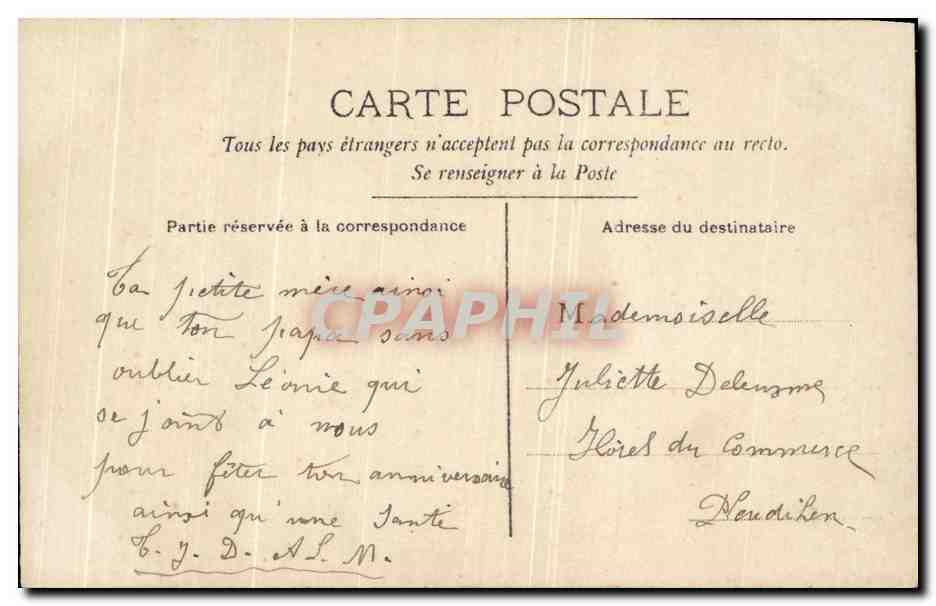 CARTE POSTALE
Tous les pays étrangers n'acceptent pas la correspondance au recto.
Se renseigner à la Poste
Partie réservée à la correspondance
Ta petite mère ainsi
que ton papa sans
oublier Léonie qui
se joint à nous
pour fêter ton anniversaire
ainsi qu'une santé
T. J. D. A L. M.
Adresse du destinataire
Mademoiselle
Juliette
Hôtel du Commerce
CPAPHIL